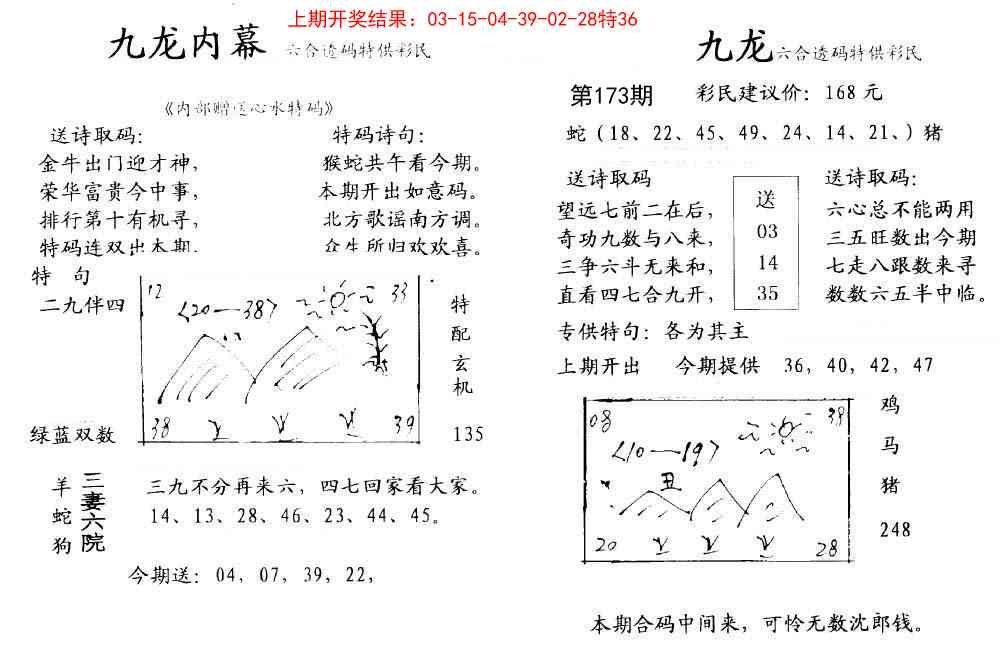 上期开奖结果：03-15-04-39-02-28特36
九龙内幕 六合透码特供彩民
《内部赠送心水特码》
送诗取码:
金牛出门迎才神，
荣华富贵今中事，
排行第十有机寻，
特码连双出本期.
特码诗句:
猴蛇共午看今期。
本期开出如意码。
北方歌谣南方调。
众生所归欢欢喜。
特 句
二九伴四
绿蓝双数
12
33
〈20—38〉
38
39
特
配
玄
机
135
羊
蛇
狗
三妻六院
三九不分再来六，四七回家看大家。
14、13、28、46、23、44、45。
今期送：04，07，39，22，
九龙六合透码特供彩民
第173期 彩民建议价：168元
蛇（18、22、45、49、24、14、21、）猪
送诗取码
望远七前二在后，
奇功九数与八来，
三争六斗无来和，
直看四七合九开，
送
03
14
35
送诗取码：
六心总不能两用
三五旺数出今期
七走八跟数来寻
数数六五半中临。
专供特句：各为其主
上期开出 今期提供 36，40，42，47
08
38
〈10—19〉
丑
20
28
鸡
马
猪
248
本期合码中间来，可怜无数沈郎钱。